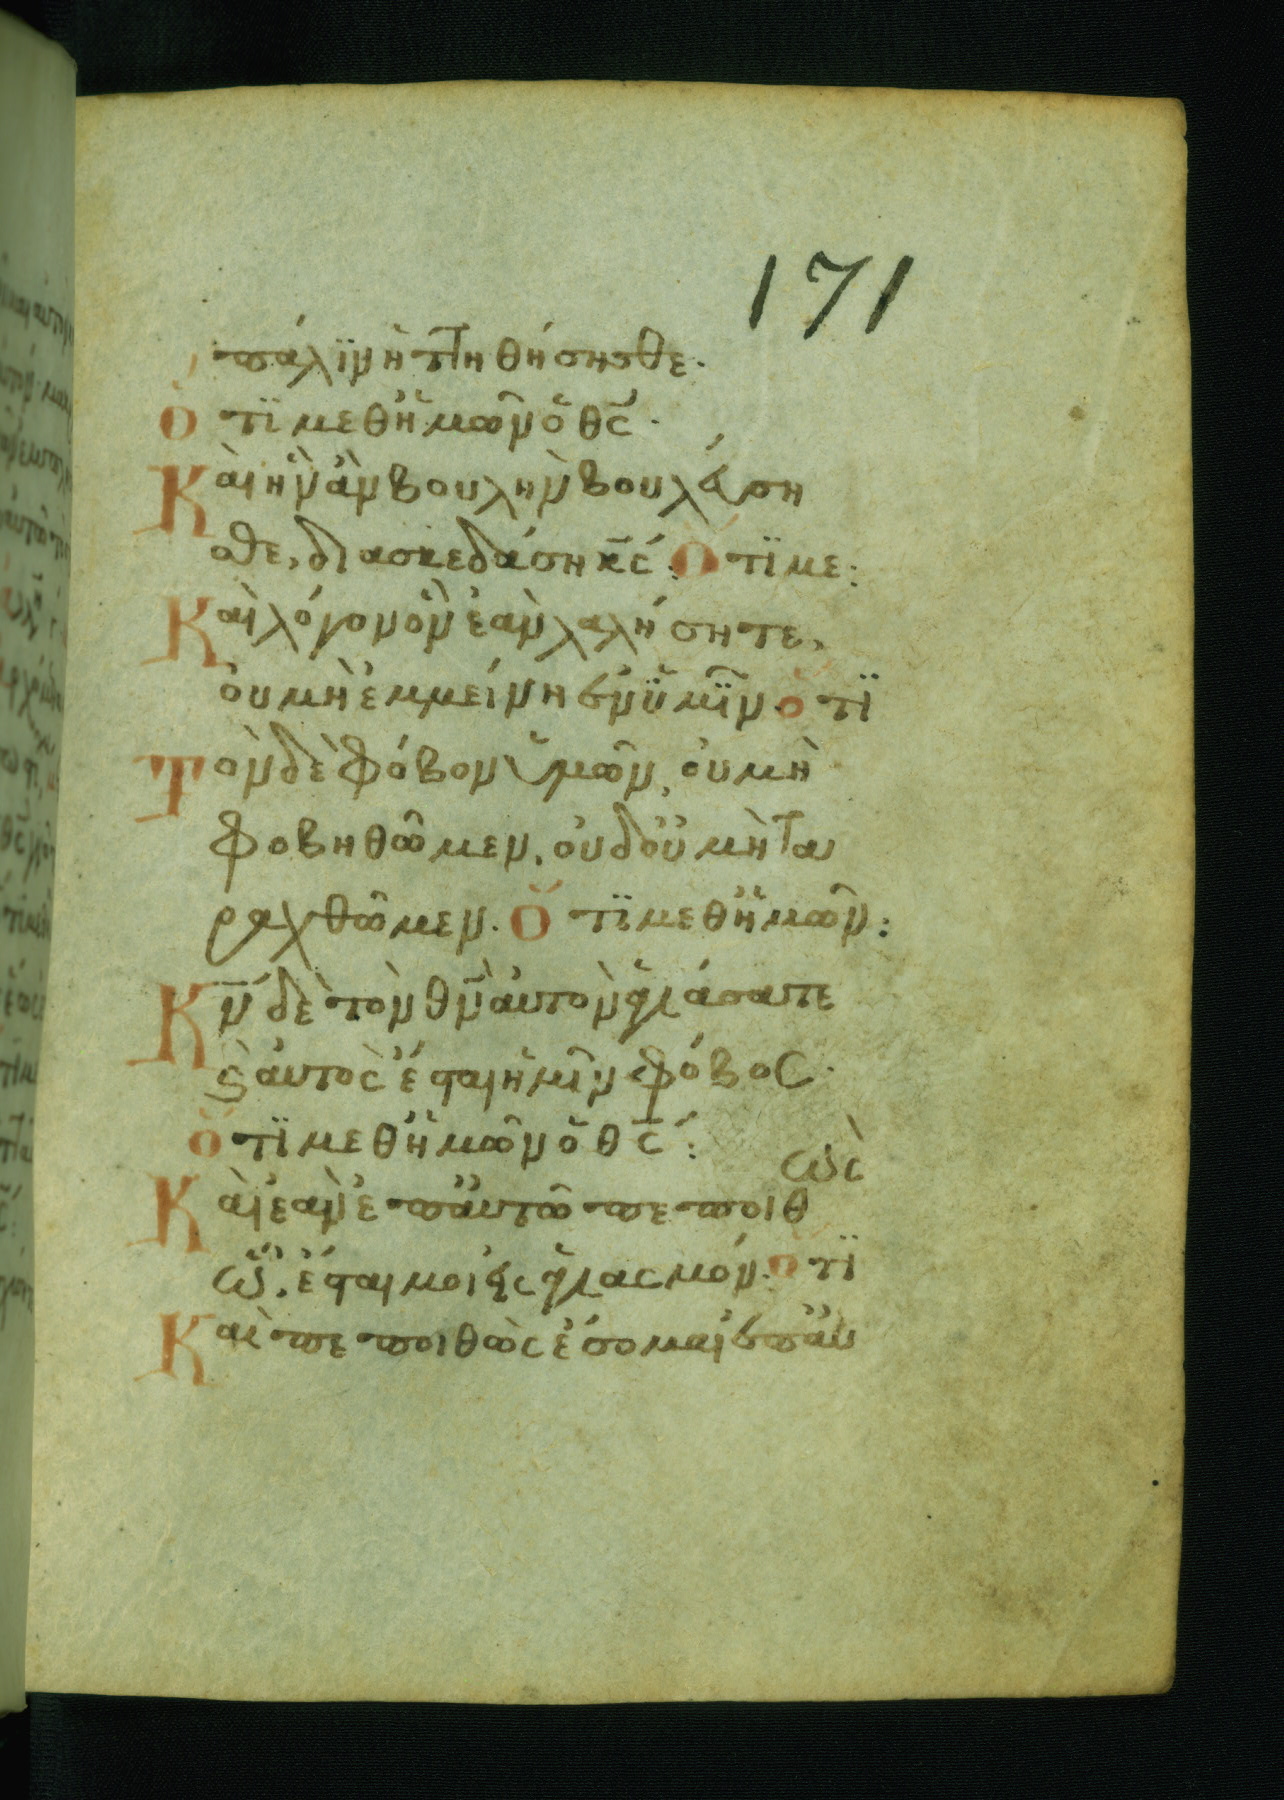 171
πάλϊν ἡττηθήσησθε·
Ὅτϊ μεθ ἡμῶν ὁ θς·
Καὶ ἣν ἂν βουλὴν βουλεύση
σθε, διασκεδάση κς: Ὅτϊ με:
Καὶ λόγον ὃν ἐὰν λαλήσητε,
ὀυ μὴ ἐμμείνη ἐν ϋμῖν· ὅτϊ
Τὸν δὲ φόβον ὑμῶν, ὀυ μὴ
φοβηθῶμεν, ὀυδ ὀυ μὴ τα
ραχθῶμεν· Ὅτϊ μεθ ἡμῶν:
Κν δὲ τὸν θν ἀυτὸν ἁγιάσατε
ϗ ἀυτὸς ἔσται ἡμῖν φόβος·
ὅτϊ μεθ ἡμῶν ὁ θς:
ὡς
Καὶ ἐὰν ἐπ ἀυτῶ πεποιθ
ὦ, ἔσται μοι εἰς ἁγιασμόν· ὅτϊ
Καὶ πεποιθὼς ἔσομαι ἐπ ἀυ